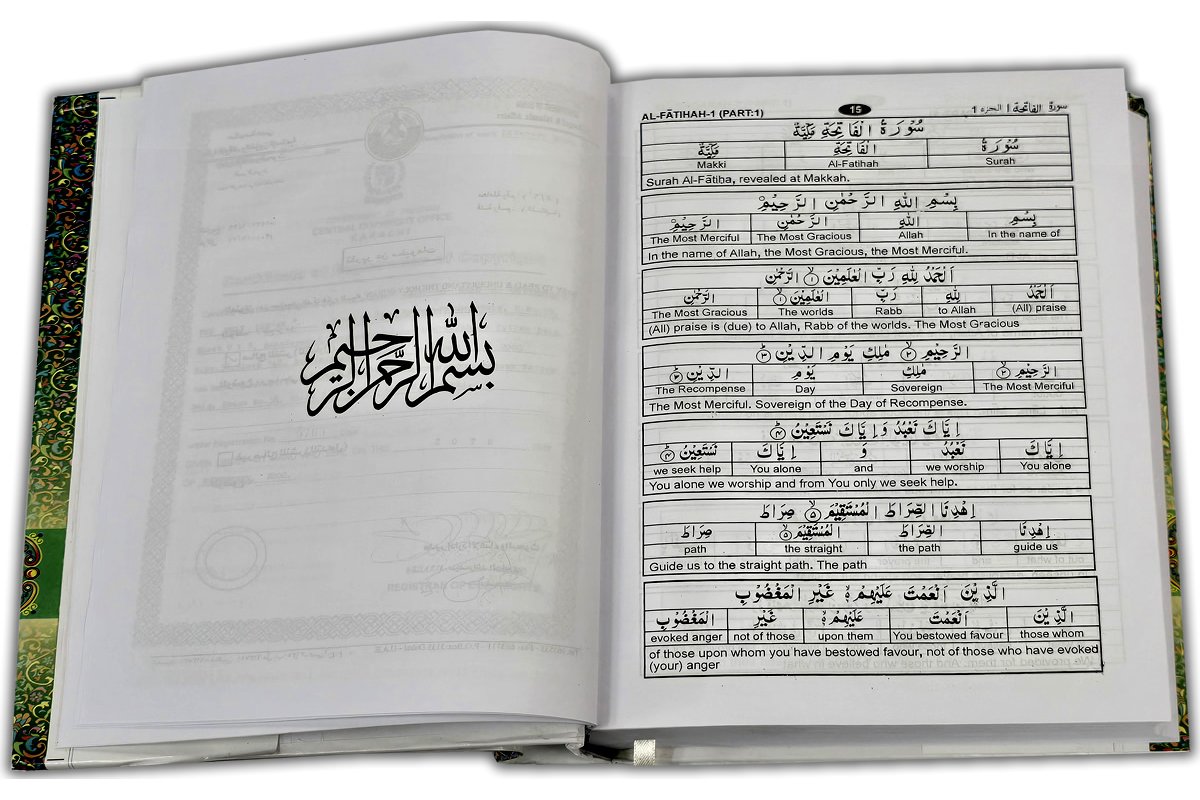 بسم الله الرحمن الرحيم
AL-FĀTIHAH-1 (PART:1) 15 سورة الفاتحة ١ الجزء 1
سُوْرَةُ الْفَاتِحَةِ مَكِّيَّةٌ
سُوْرَةُ الْفَاتِحَةِ مَكِّيَّةٌ
Makki Al-Fatihah Surah
Surah Al-Fātiba, revealed at Makkah.
بِسْمِ اللهِ الرَّحْمٰنِ الرَّحِيْمِ
بِسْمِ اللهِ الرَّحْمٰنِ الرَّحِيْمِ
The Most Merciful The Most Gracious Allah In the name of
In the name of Allah, the Most Gracious, the Most Merciful.
اَلْحَمْدُ لِلّٰهِ رَبِّ الْعٰلَمِيْنَ ١ الرَّحْمٰنِ
اَلْحَمْدُ لِلّٰهِ رَبِّ الْعٰلَمِيْنَ ١ الرَّحْمٰنِ
The Most Gracious The worlds Rabb to Allah (All) praise
(All) praise is (due) to Allah, Rabb of the worlds. The Most Gracious
الرَّحِيْمِ ٢ مٰلِكِ يَوْمِ الدِّيْنِ ٣
الرَّحِيْمِ ٢ مٰلِكِ يَوْمِ الدِّيْنِ ٣
The Recompense Day Sovereign The Most Merciful
The Most Merciful. Sovereign of the Day of Recompense.
اِيَّاكَ نَعْبُدُ وَاِيَّاكَ نَسْتَعِيْنُ ٤
اِيَّاكَ نَعْبُدُ وَ اِيَّاكَ نَسْتَعِيْنُ ٤
we seek help You alone and we worship You alone
You alone we worship and from You only we seek help.
اِهْدِنَا الصِّرَاطَ الْمُسْتَقِيْمَ ٥ صِرَاطَ
اِهْدِنَا الصِّرَاطَ الْمُسْتَقِيْمَ ٥ صِرَاطَ
path the straight the path guide us
Guide us to the straight path. The path
الَّذِيْنَ اَنْعَمْتَ عَلَيْهِمْ غَيْرِ الْمَغْضُوْبِ
الَّذِيْنَ اَنْعَمْتَ عَلَيْهِمْ غَيْرِ الْمَغْضُوْبِ
evoked anger not of those upon them You bestowed favour those whom
of those upon whom you have bestowed favour, not of those who have evoked
(your) anger